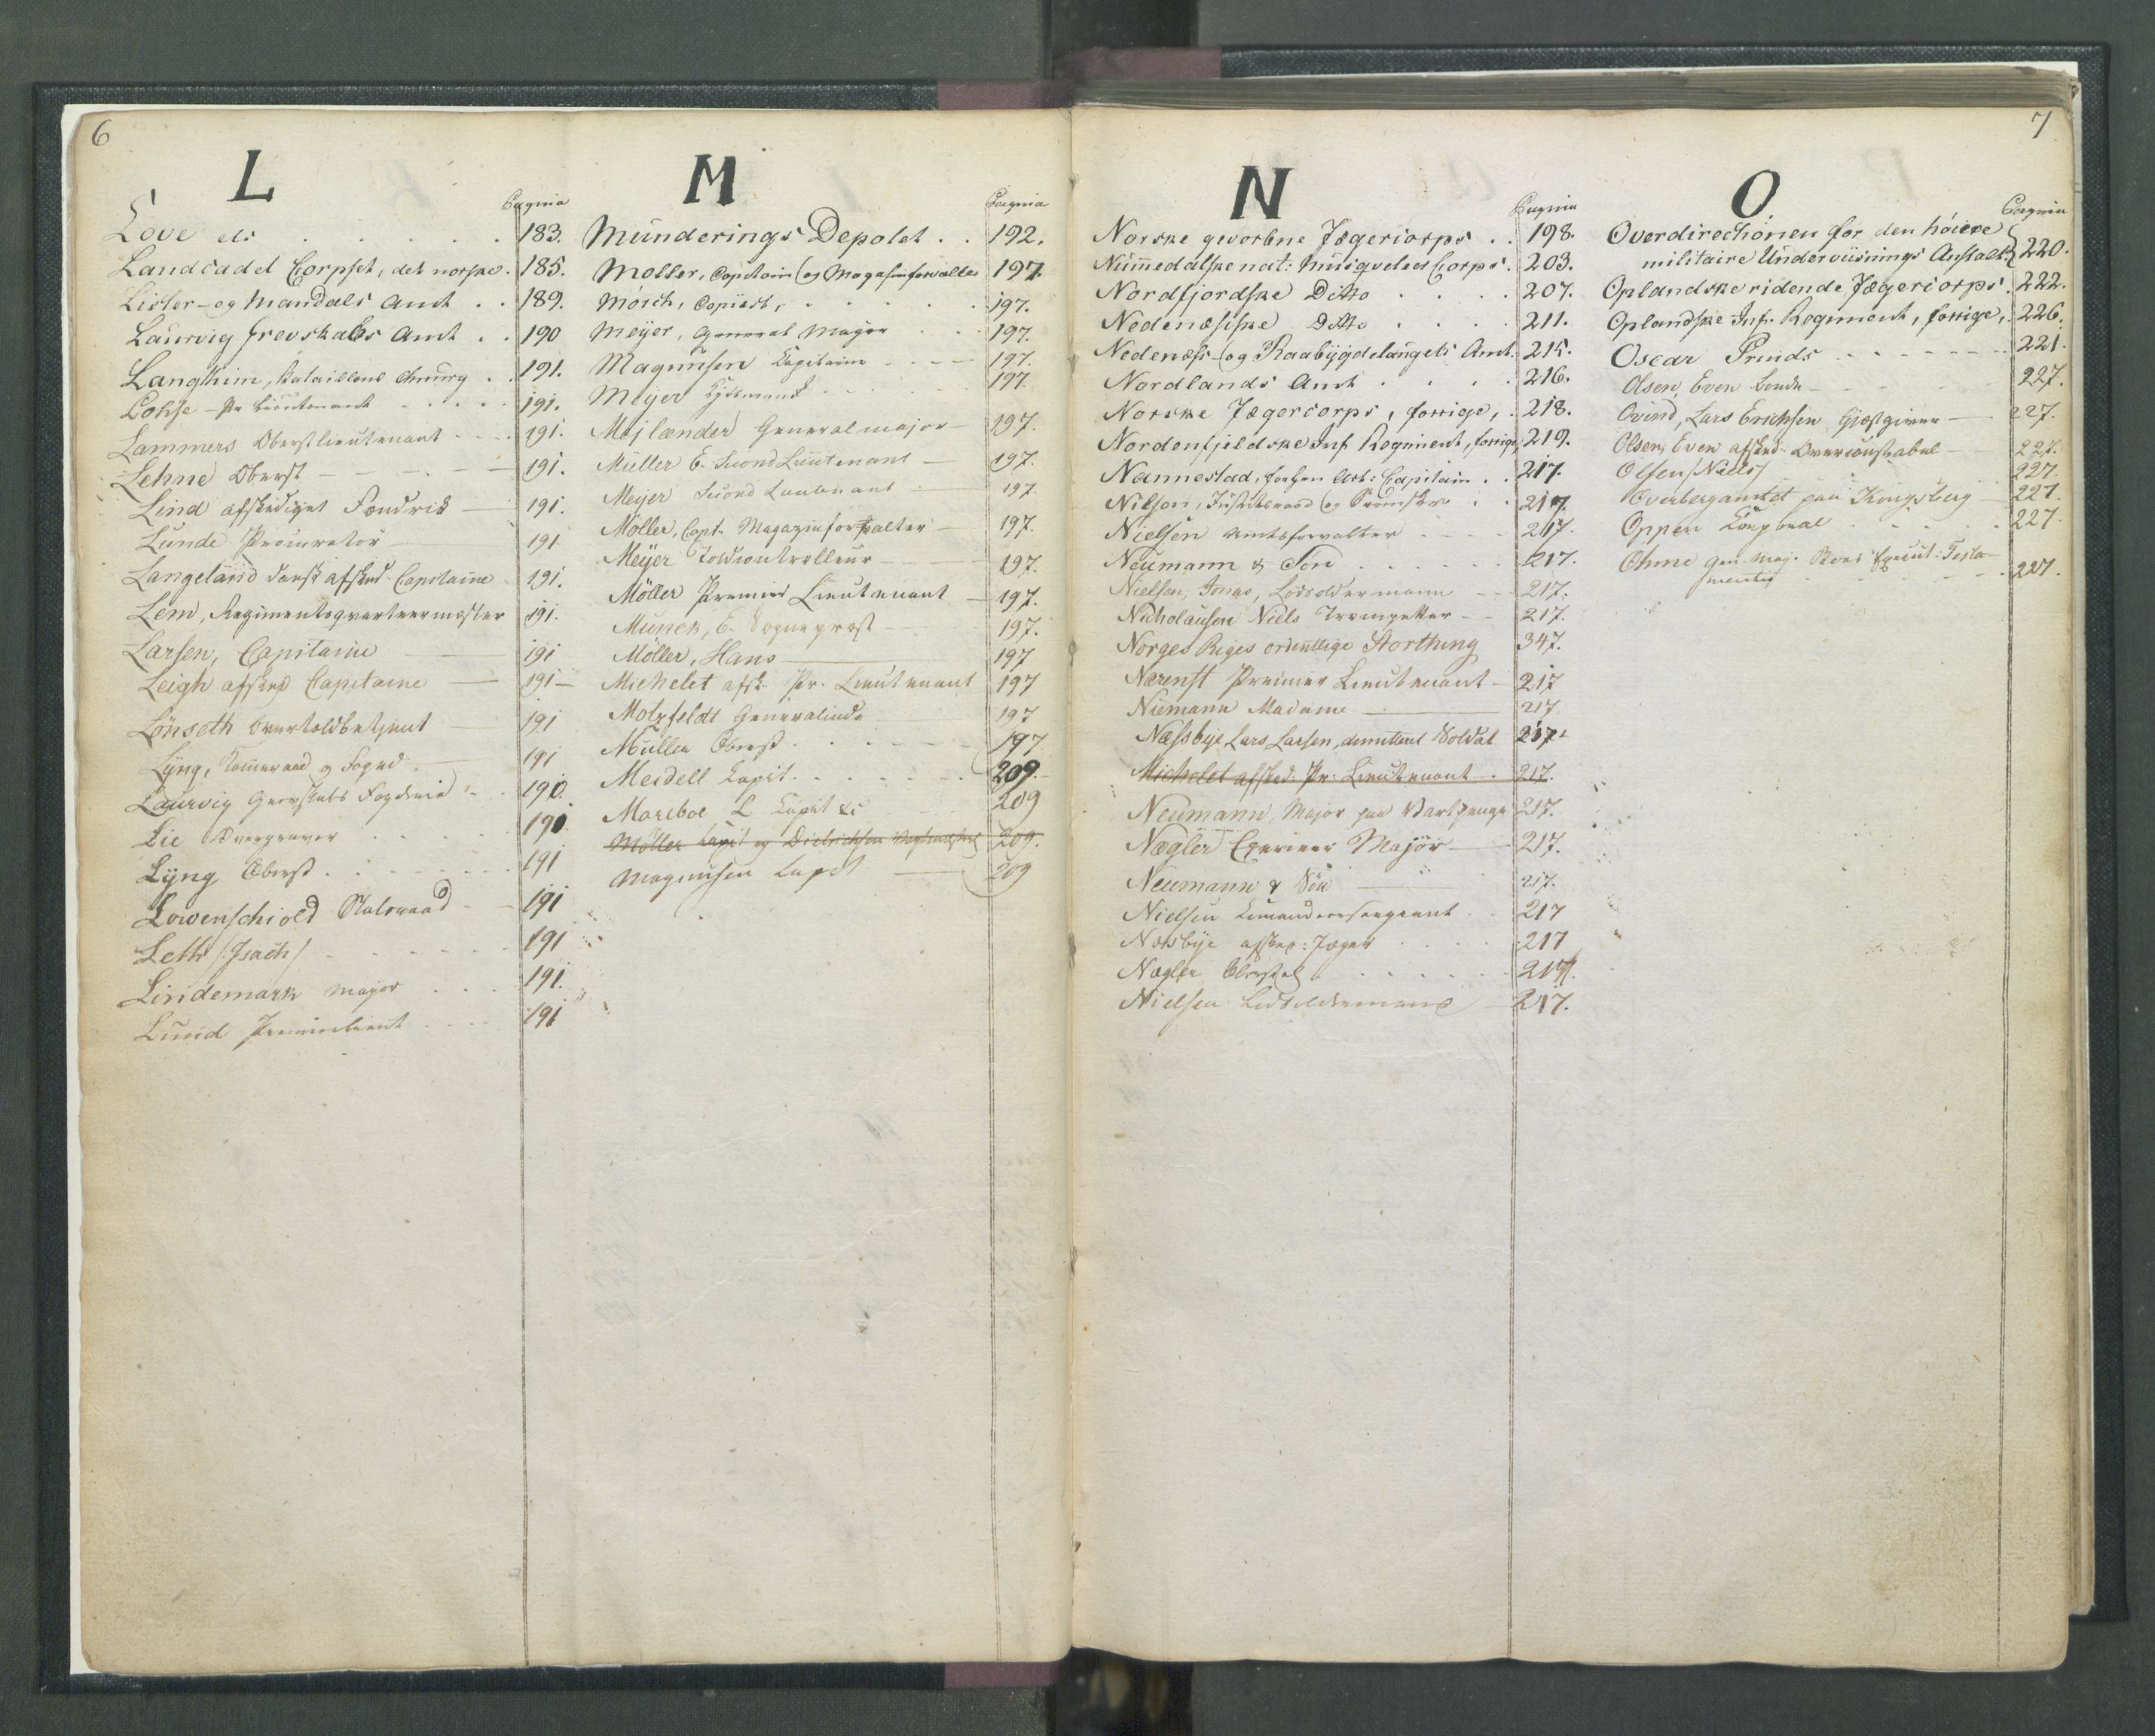 6
L
Pagina
Love etc 183.
Landcadet Corpset, det norske 185.
Lister- og Mandals Amt 189.
Laurvig Grevskabs Amt 190
Langhim, Bataillons Chirurg 191.
Lohse - Pr Lieutenant 191.
Lammers Oberstlieutenant 191.
Lehne Oberst 191.
Lind afskediget Fændrik 191.
Lunde Procurator 191
Langeland dansk afsked. Capitaine 191.
Lem, Regimentsqvarteermester 191.
Larsen, Capitaine 191
Leigh afsked Capitaine 191
Lönseth Overtoldbetjent 191
Lyng, Kammeraad og Foged 191
Laurvig Grevskabs Fogderie 190.
Lie 190
Lyng Oberst 191
Lowenschiold Statsraad 191
Leth /:Isach/ 191
Lindemark Major 191.
Lund Premierlieut 191
M
Pagina
Munderings Depotet 192.
Moller, Capitain og Magasinforvalter 197.
Mörch, Copiist, 197.
Meyer, General Major 197.
Magnusen Capitain 197.
Meyer 197.
Mejlænder Generalmajor 197.
Müller E. Second Lieutenant 197.
Meyer Second Lieutenant 197.
Möller, Capt. Magazinforvalter 197.
Meyer Toldcontrolleur 197.
Möller Premier Lieutenant 197.
Munck, E. Sogneprest 197.
Möller, Hans 197
Michelet afsk. Pr. Lieutenant 197
Motzfeldt Generalinde 197
Müller Oberst 197
Meidell Capit. 209.
Mareboe L Capit 209
Möller Capit og Dietrichson 209.
Magnusen Capt 209
7
N
Pagina
Norske gevorbne Jægercorps 198.
Nummedalske nat: Musqveteer Corps. 203.
Nordfjordske Ditto 207.
Nedenæsiske Ditto 211.
Nedenæss- og Raabygdelaugets Amt. 215.
Nordlands Amt 216.
Norske Jægercorps, forrige, 218.
Nordenfjeldske Inf. Regiment, forrige, 219.
Nannestad, Capitain 217.
Nilson, 217.
Nielsen Amtsforvalter 217.
Neumann & Son 217.
Nielsen, Jonas, Lodsoldermann 217.
Nicholausen Niels Trompetter 217.
Norges Riges ordentlige Storthing 347.
Nærenst Premier Lieutenant 217
Niemann Madame 217
Næssbye, Lars Larsen, demitteret Soldat 217.
Michelet afsked: Pr: Lieutenant 217.
Neumann, Major paa Vartpenge 217.
Nægler Major 217.
Neumann & Sön 217.
Nielsen 217
Næsbye afsked: Jæger 217
Nægler 217.
Nielsen Lodsoldermand 217.
O
Pagina
Overdirectionen for den höiere
militaire Underviisnings Anstalt 220.
Oplandske ridende Jægercorps. 222.
Oplandske Inf. Regiment, forrige, 226.
Oscar Prinds 221.
Olsen, Even 227.
Ovind, Lars Erichsen Gjæstgiver 227.
Olsen, Even afsked. Overconstabel 227.
Olsen /Niels/ 227.
Overbergamtet paa Kongsberg 227.
Oppen Korporal 227.
Ohme Gen. Maj. Execut: Testa-
mentes 227.